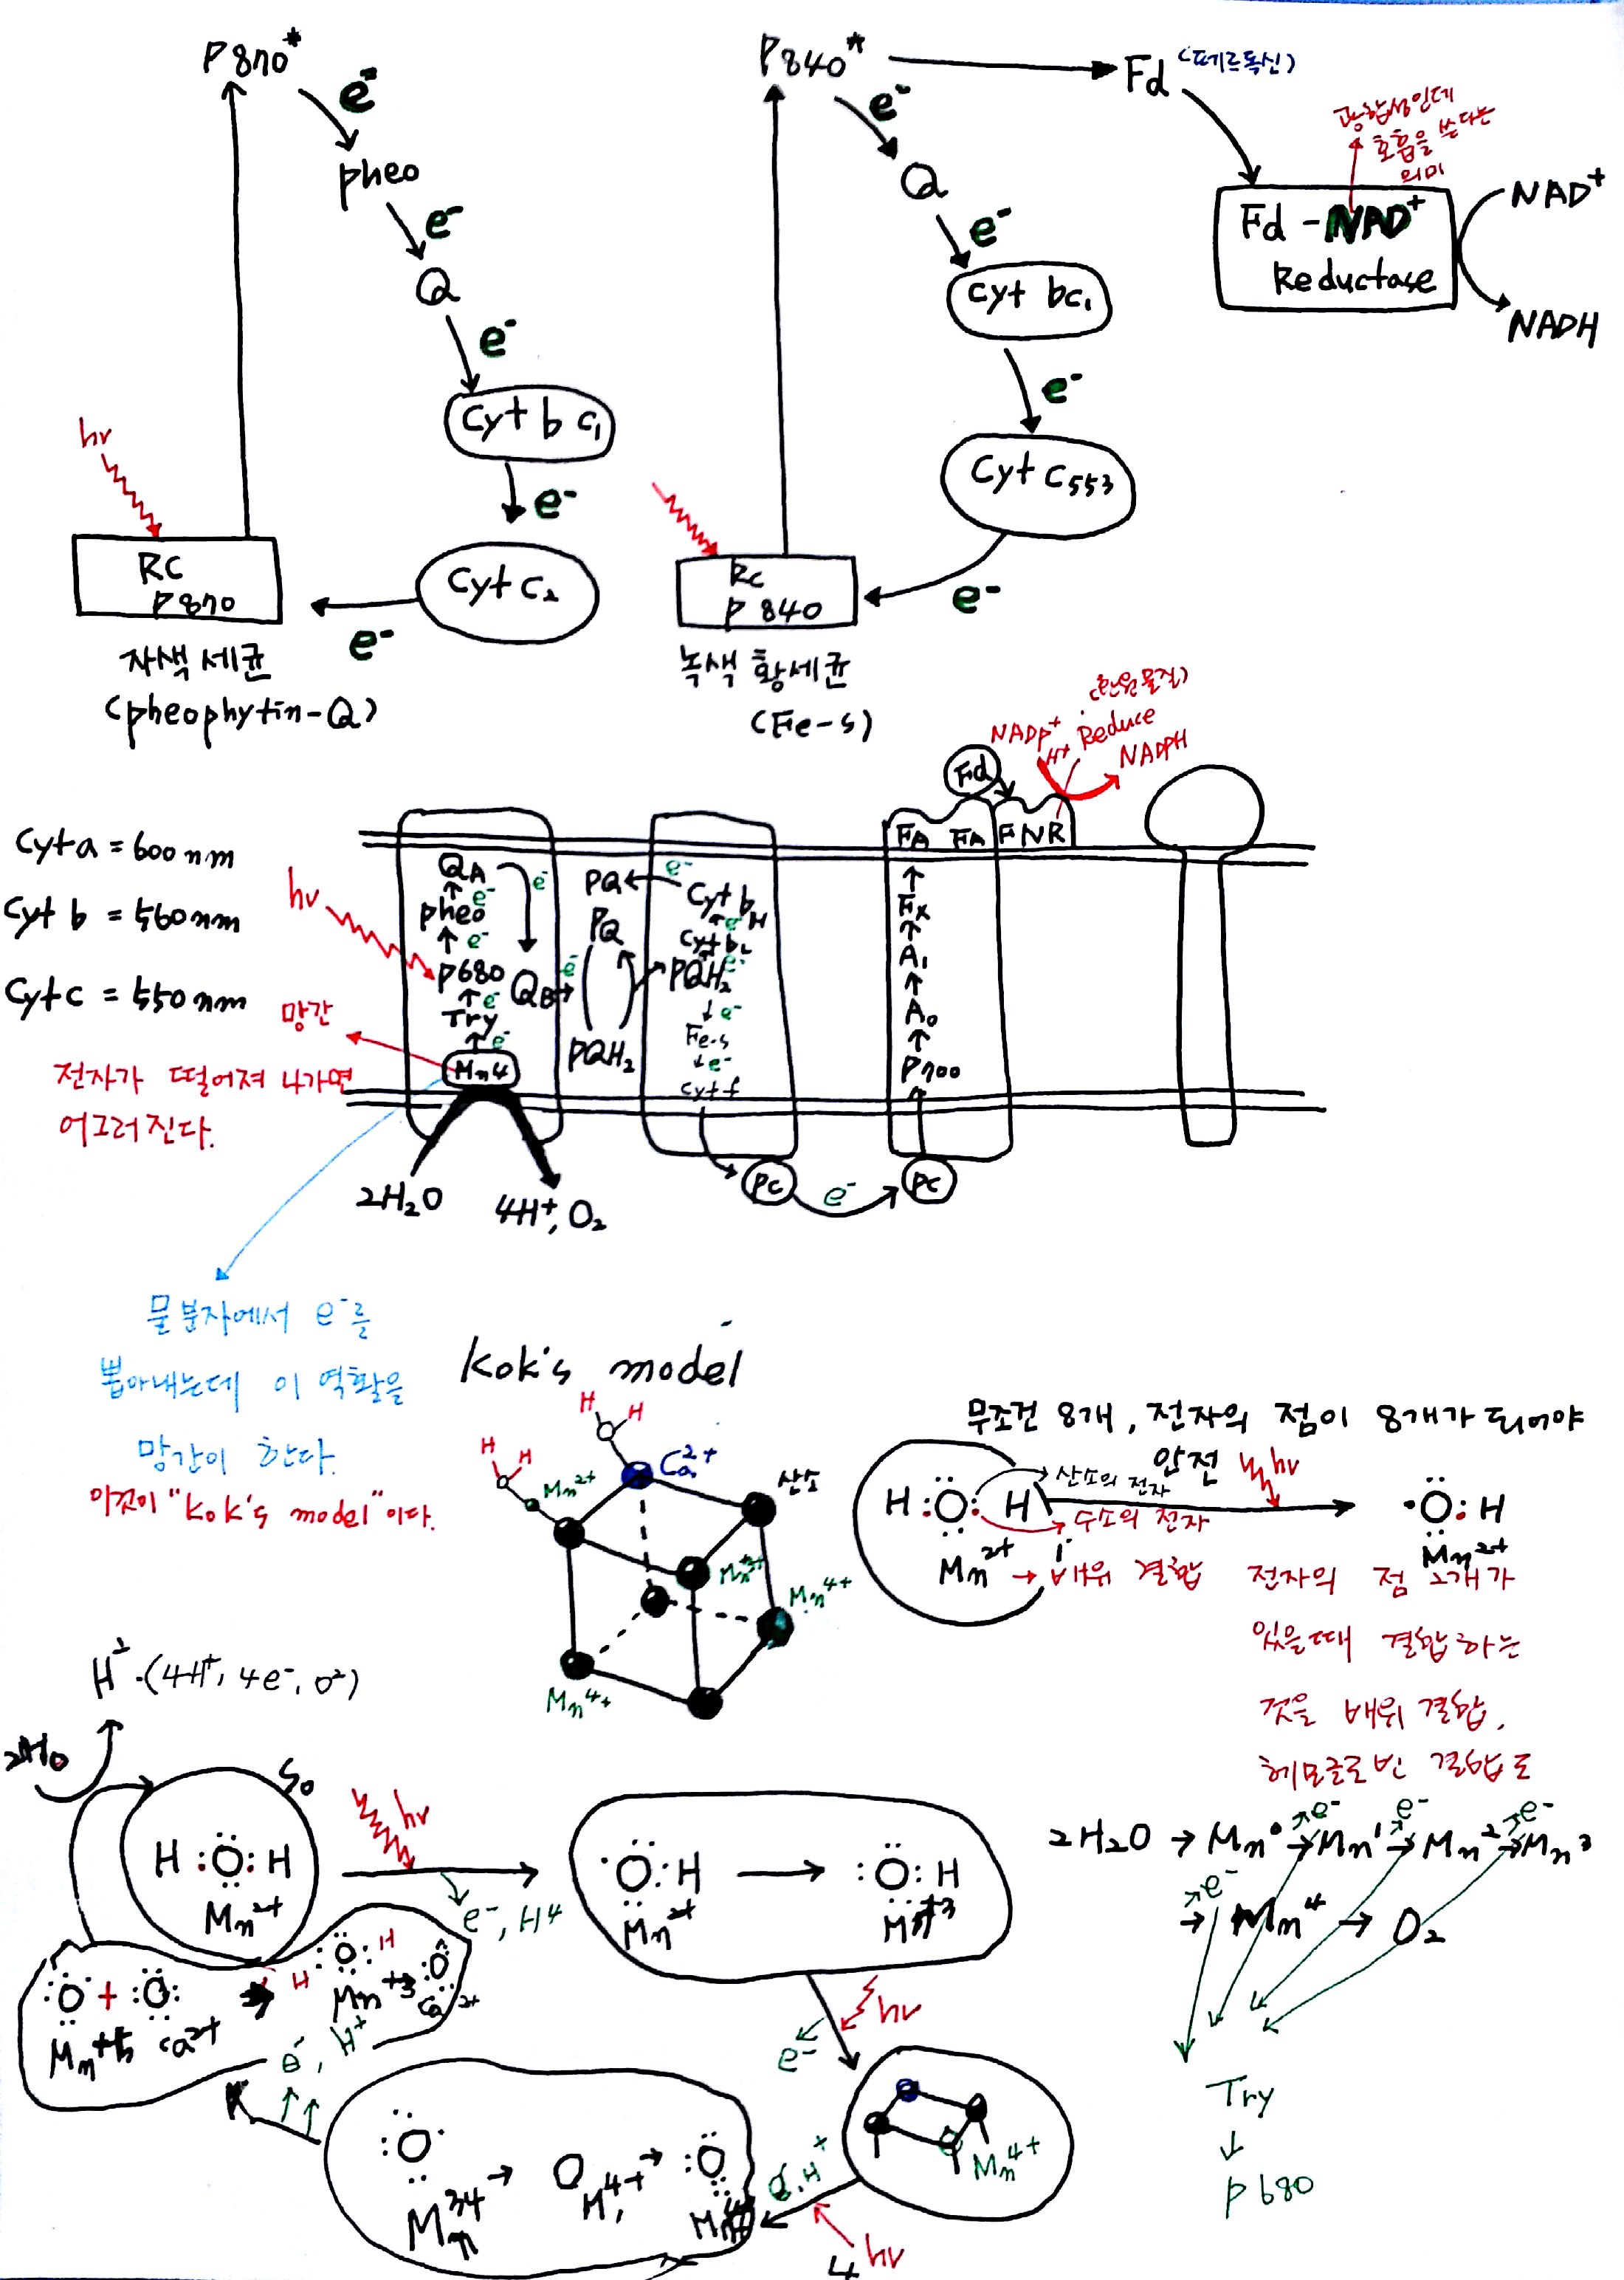 P870*
e⁻
pheo
e⁻
Q
e⁻
Cyt b c₁
e⁻
Cyt c₂
e⁻
hν
RC
P870
자색 세균
(pheophytin-Q)
P840*
e⁻
Q
e⁻
Cyt bc₁
e⁻
Cyt c₅₅₃
e⁻
RC
P 840
녹색 황세균
(Fe-S)
Fd (페르독신)
광합성인데
호흡을 쓴다는
의미
Fd - NAD⁺
Reductase
NAD⁺
NADH
Cyt a = 600 nm
Cyt b = 560 nm
Cyt c = 550 nm
hν
망간
전자가 떨어져 나가면
어그러진다.
QA
e⁻
e⁻
pheo
e⁻
P680
QB
e⁻
e⁻
Try
e⁻
Mn4
2H₂O
4H⁺, O₂
PQ
PQ
PQH₂
e⁻
Cyt bH
e⁻
Cyt bL
e⁻
PQH₂
e⁻
Fe-S
e⁻
Cyt f
PC
e⁻
PC
FA
FA
FNR
Fx
A₁
A₀
P700
Fd
NADP⁺
H⁺
Reduce
(환원물질)
NADPH
물분자에서 e⁻를
뽑아내는데 이 역활을
망간이 한다.
이것이 "Kok's model"이다.
Kok's model
H
H
H
H
Mn²⁺
Ca²⁺
산소
Mn⁴⁺
Mn⁴⁺
무조건 8개, 전자의 점이 8개가 되어야
안전
hν
H:O: H
산소의 전자
수소의 전자
Mn²⁺ → 배위 결합
·O:H
Mn²⁺
전자의 점 2개가
있을때 결합하는
것을 배위 결합.
헤모글로빈 결합도
H⁺·(4H⁺, 4e⁻, O²)
S₀
H:O:H
Mn²⁺
hν
e⁻, H⁴
·O:H
Mn²⁺
:O:H
Mn⁺³
hν
e⁻
Mn⁴⁺
hν
4
:O·
Mn³⁴
O
:O:
e⁻, H⁺
:O· + :O:
Ca²⁺
H
:O:
H
Mn⁺³
:O:
Ca²⁺
2H₂O → Mn⁰ → Mn¹ → Mn² → Mn³
e⁻
e⁻
e⁻
e⁻
→ Mn⁴ → O₂
Try
P680